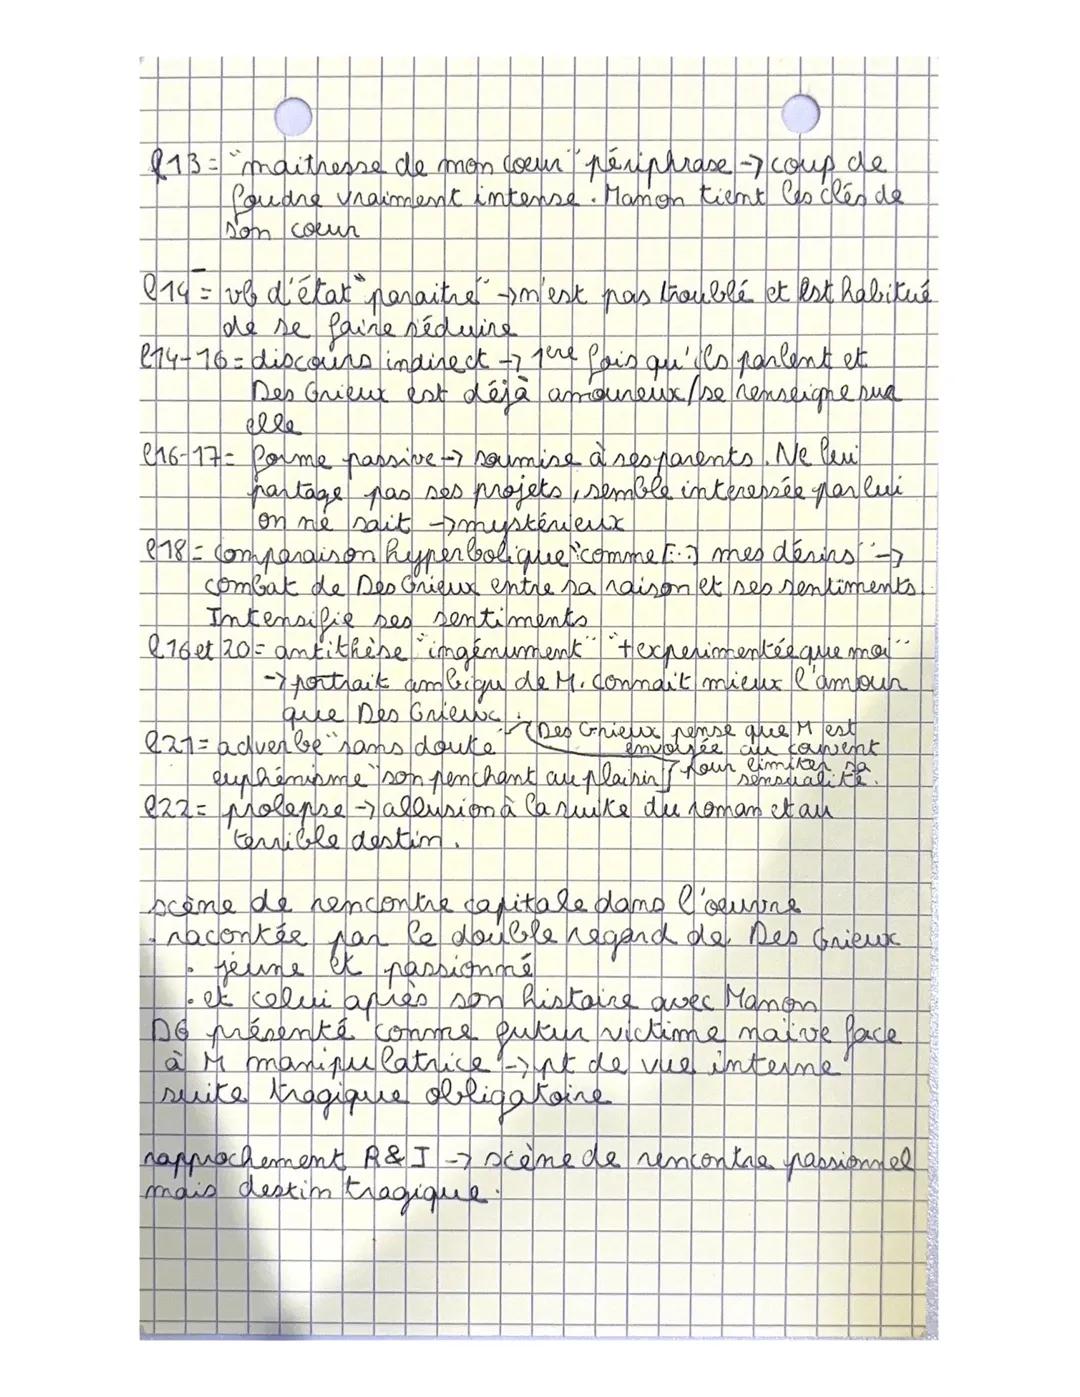 l13 = "maitresse de mon coeur" périphrase → coup de
foudre vraiment intense. Manon tient les clés de
son coeur
l14 = vb d'état "paraitre" → m'est pas troublé et est habitué
de se faire séduire
l14-16 = discours indirect → 1ere fois qu'ils parlent et
Des Grieux est déjà amoureux/se renseigne sur
elle
l16-17 = forme passive → soumise à ses parents. Ne lui
partage pas ses projets, semble interessée par lui
on ne sait → mystérieux
l18 = comparaison hyperbolique "comme [...] mes désirs" →
combat de Des Grieux entre sa raison et ses sentiments.
Intensifie ses sentiments
l16 et 20 = antithèse "ingénument" "+ experimentée que moi"
→ portrait ambigu de M. connait mieux l'amour
que Des Grieux.
l21 = adverbe "sans doute"
euphémisme "son penchant au plaisir"
(Des Grieux pense que M est
envoyée au couvent
pour limiter sa
sensualité.
l22 = prolepse → allusion à la suite du roman et au
terrible destin.
scène de rencontre capitale dans l'oeuvre
. racontée par le double regard de Des Grieux
. jeune et passionné
. et celui après son histoire avec Manon
DG présenté comme futur victime naïve face
à M manipulatrice → pt de vue interne
suite tragique obligatoire
rapprochement R&J → scène de rencontre passionnel
mais destin tragique.